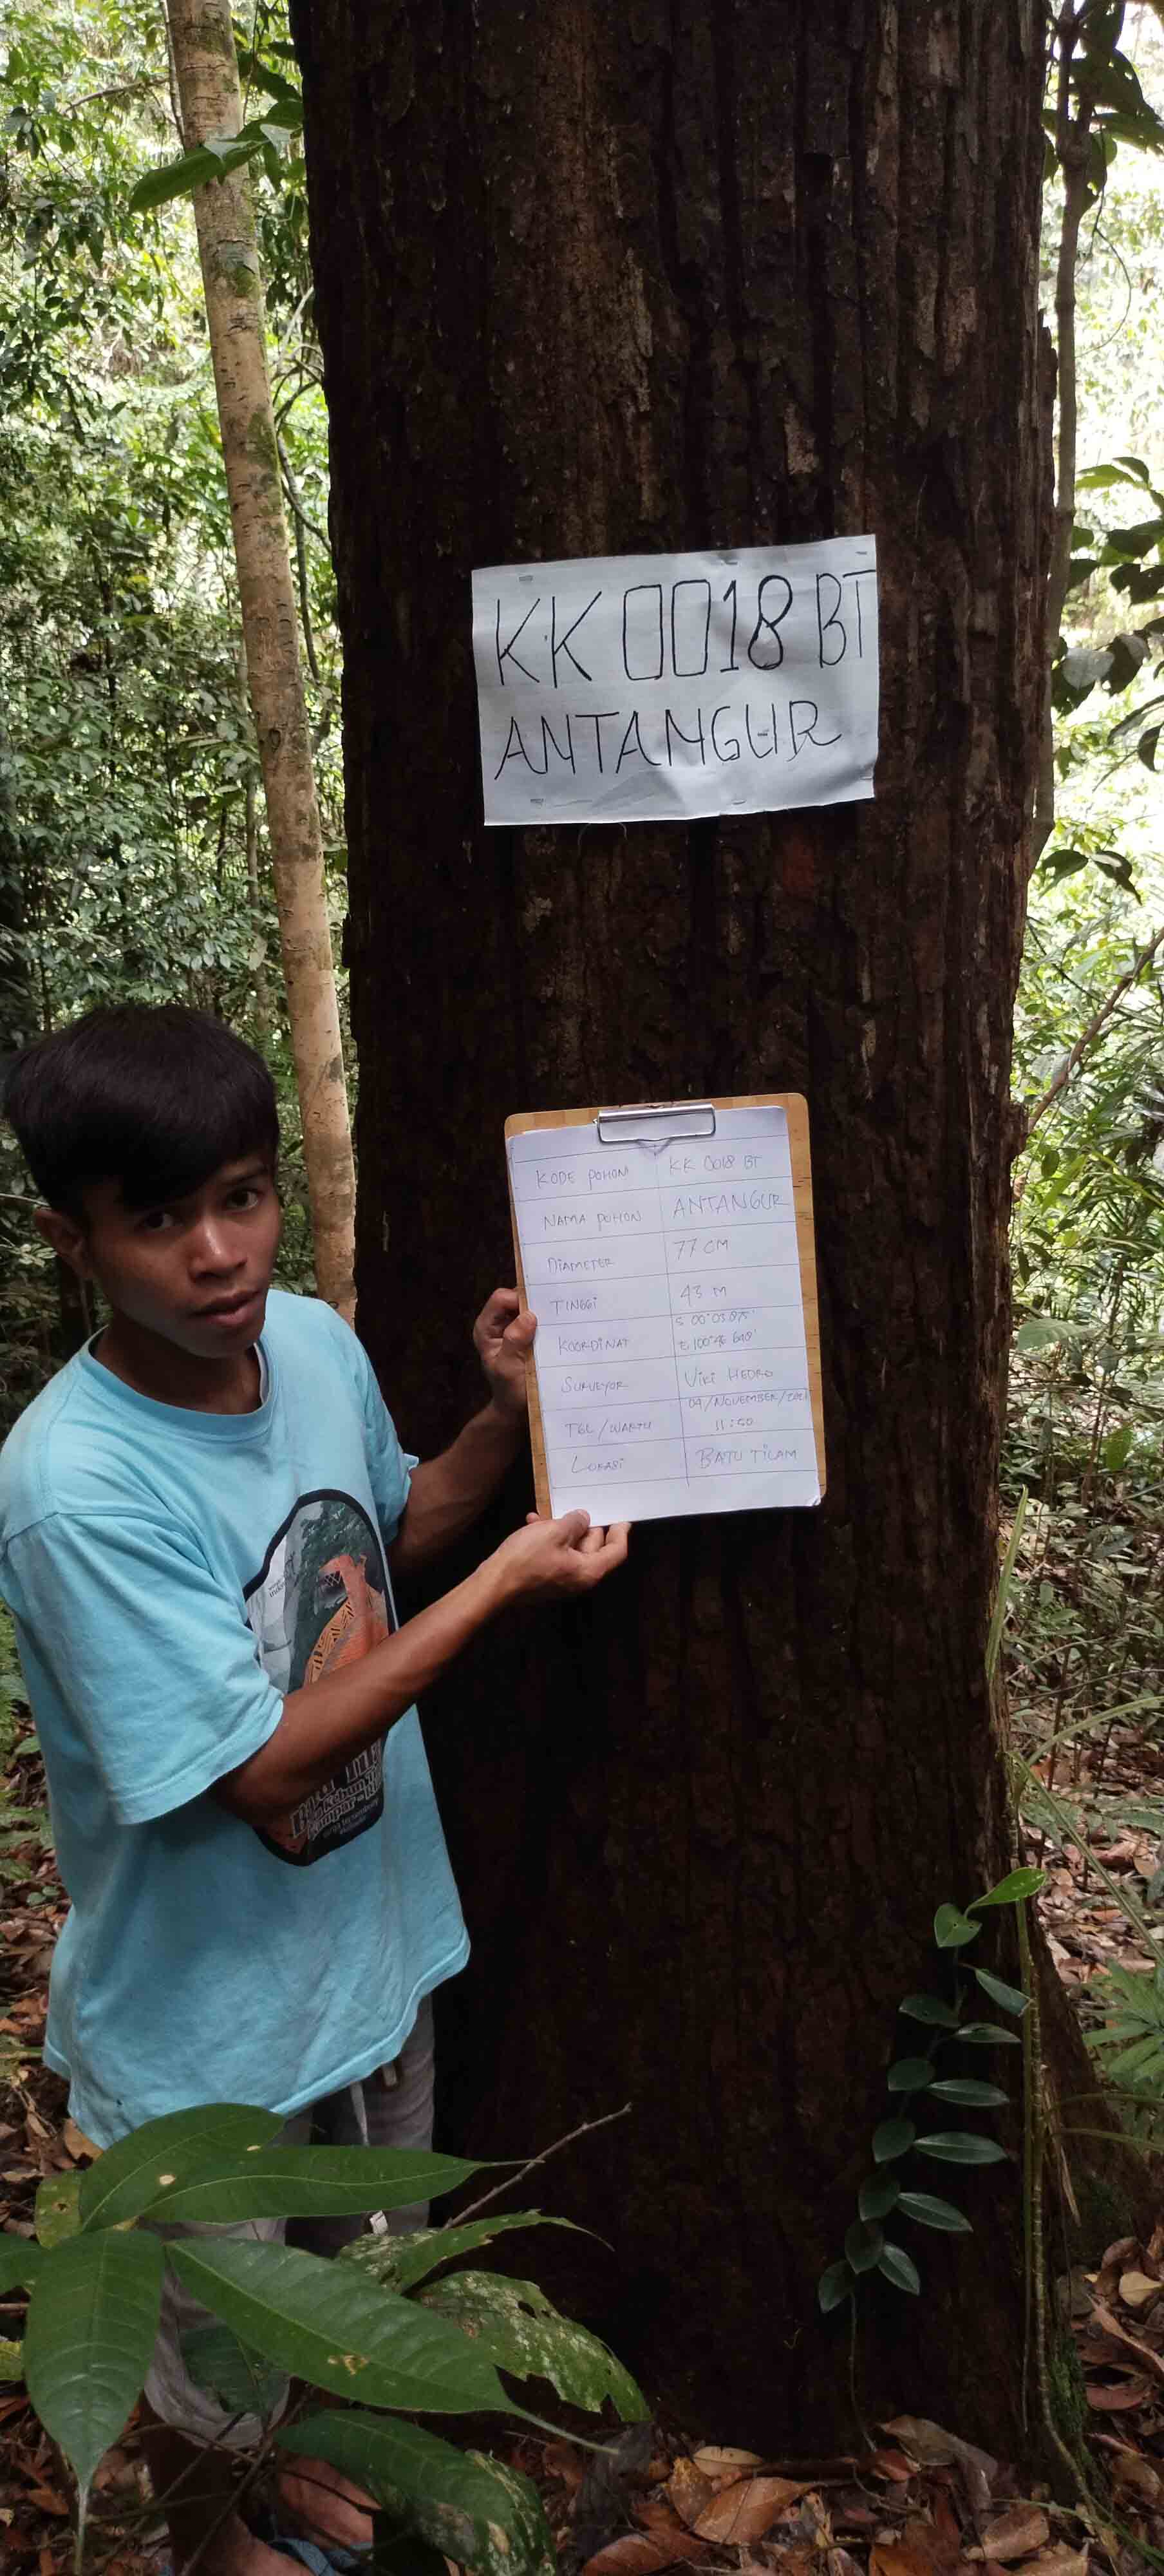 KK 0018 BT
ANTANGUR
KODE POHON KK 0018 BT
NAMA POHON ANTANGUR
DIAMETER 77 CM
TINGGI 43 M
KOORDINAT S 00°03.875'
E 100°46
SURVEYOR VIKI HEDRO
TGL/WAKTU 04/NOVEMBER/2021
11:50
LOKASI BATU TILAM